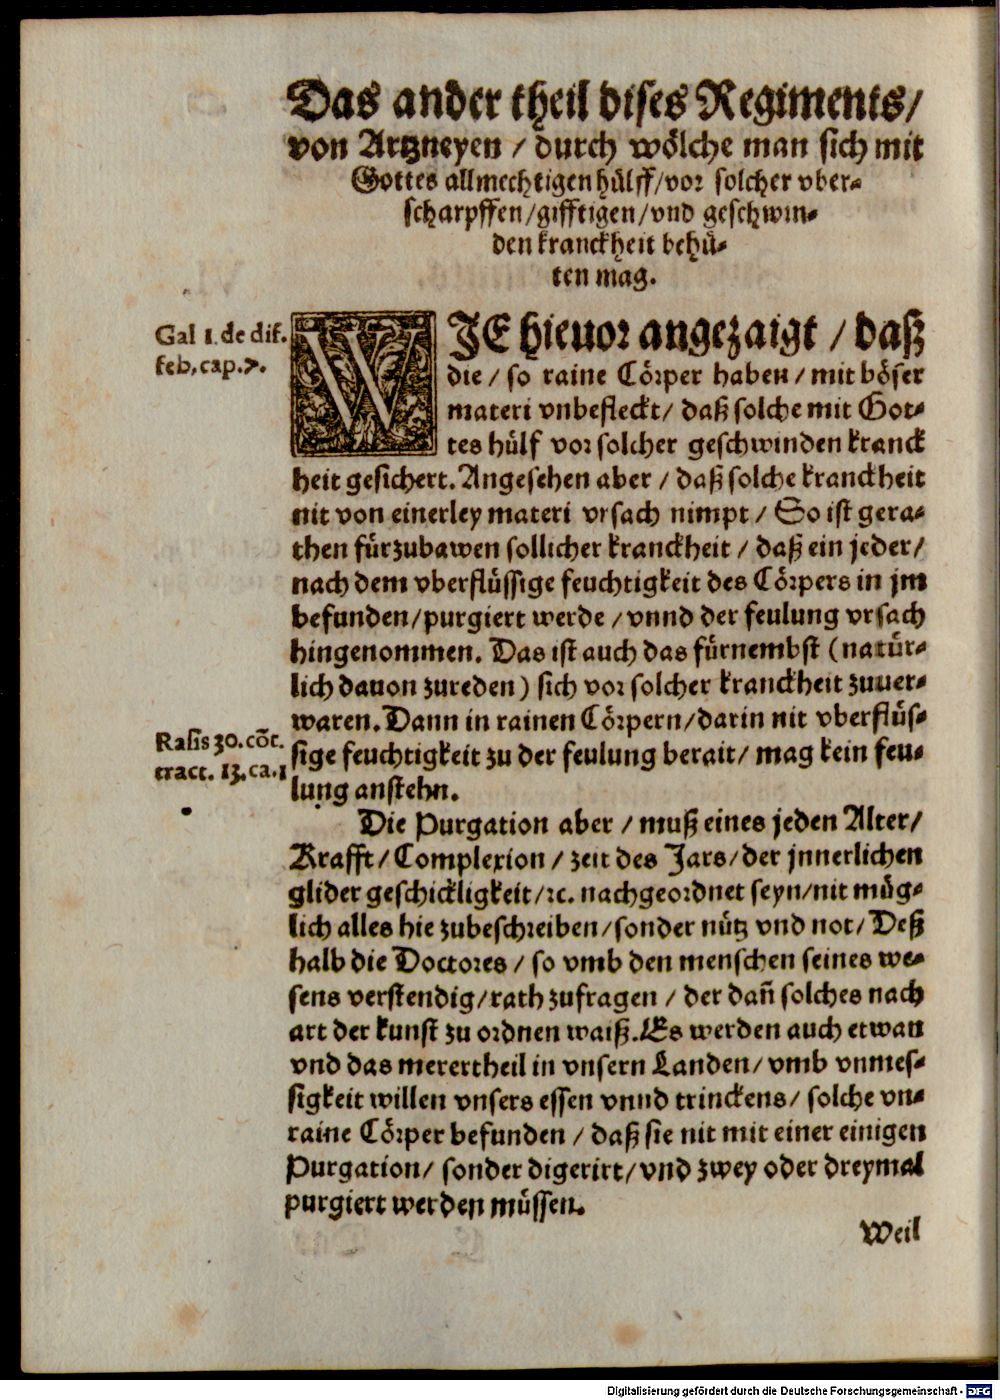 Das ander theil dises Regiments/
von Artzneyen / durch wölche man sich mit
Gottes allmechtigen hülff/vor solcher vber-
scharpffen/gifftigen/vnd geschwin-
den kranckheit behü-
ten mag.
Gal 1. de dif.
feb, cap.7.
WJE hieuor angezaigt / daß
die / so raine Cörper haben / mit böser
materi vnbefleckt/ daß solche mit Got-
tes hülf vor solcher geschwinden kranck
heit gesichert. Angesehen aber / daß solche kranckheit
nit von einerley materi vrsach nimpt / So ist gera-
then fürzubawen sollicher kranckheit / daß ein jeder/
nach dem vberflüssige feuchtigkeit des Cörpers in jm
befunden/purgiert werde / vnnd der feulung vrsach
hingenommen. Das ist auch das fürnembst (natür-
lich dauon zureden) sich vor solcher kranckheit zuuer-
waren. Dann in rainen Cörpern/darin nit vberflüs-
Rasis 30. cõt.
tract. 13. ca. 1
sige feuchtigkeit zu der feulung berait/ mag kein feu-
lung anstehn.
Die Purgation aber / muß eines jeden Alter/
Krafft/ Complexion / zeit des Jars/ der jnnerlichen
glider geschickligkeit/ꝛc. nachgeordnet seyn/nit müg-
lich alles hie zubeschreiben/sonder nütz vnd not/ Deß
halb die Doctores / so vmb den menschen seines we-
sens verstendig/rath zufragen / der dañ solches nach
art der kunst zu ordnen waiß. Es werden auch etwan
vnd das merertheil in vnsern Landen/ vmb vnmes-
sigkeit willen vnsers essen vnnd trinckens/ solche vn-
raine Cörper befunden / daß sie nit mit einer einigen
Purgation/ sonder digerirt/ vnd zwey oder dreymal
purgiert werden müssen.
Weil
Digitalisierung gefördert durch die Deutsche Forschungsgemeinschaft - DFG